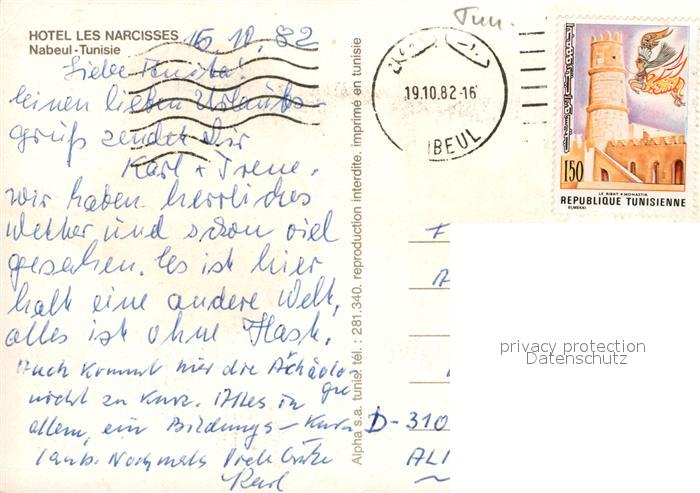 HOTEL LES NARCISSES
Nabeul-Tunisie
16.10.82
Liebe Anita!
Einen lieben Urlaubs-
gruß sendet Dir
Karl + Irene.
Wir haben herrliches
Wetter und schon viel
gesehen. Es ist hier
halt eine andere Welt,
alles ist ohne Hast.
Auch kommt hier die Archäolo-
gie
nicht zu kurz. Alles in
allem, ein Bildungs-Kur-
laub. Nochmals viele Grüße
Karl
Alpha s.a. tunis. tél. : 281.340. reproduction interdite. imprimé en tunisie
Tun.
19.10.82-16
BEUL
150
LE RIBAT MONASTIR
REPUBLIQUE TUNISIENNE
ELMEKKI
D-310
privacy protection
Datenschutz